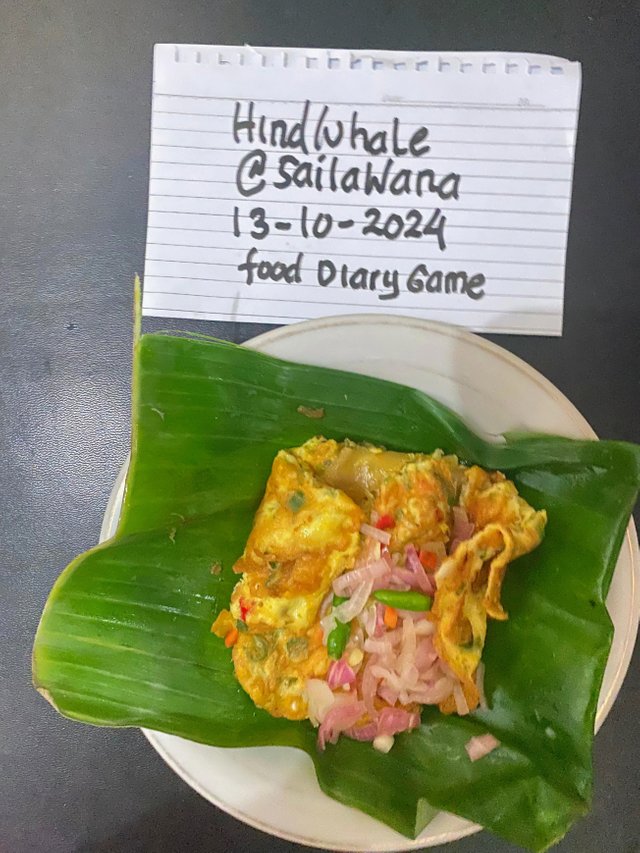 HindWhale
@Sailawana
13-10-2024
food Diary Game